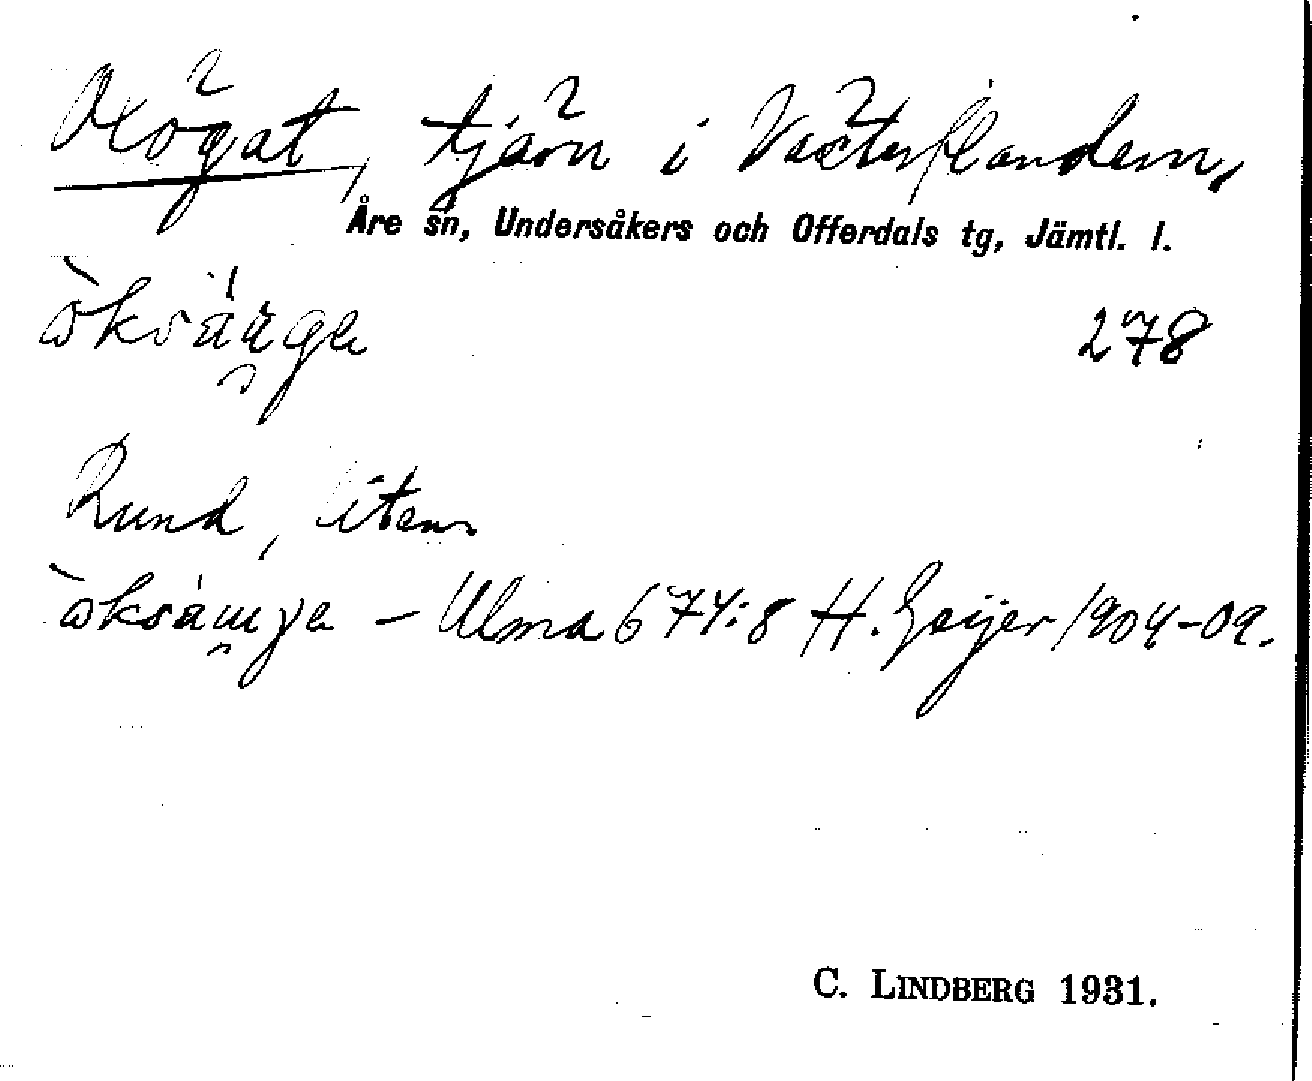 Oxögat, tjärn i Västerflandern,
Åre sn, Undersåkers och Offerdals tg, Jämtl. l.
278
Rund, liten
– Ulma 674:8 H. Geijer 1904-09.
C. LINDBERG 1931.